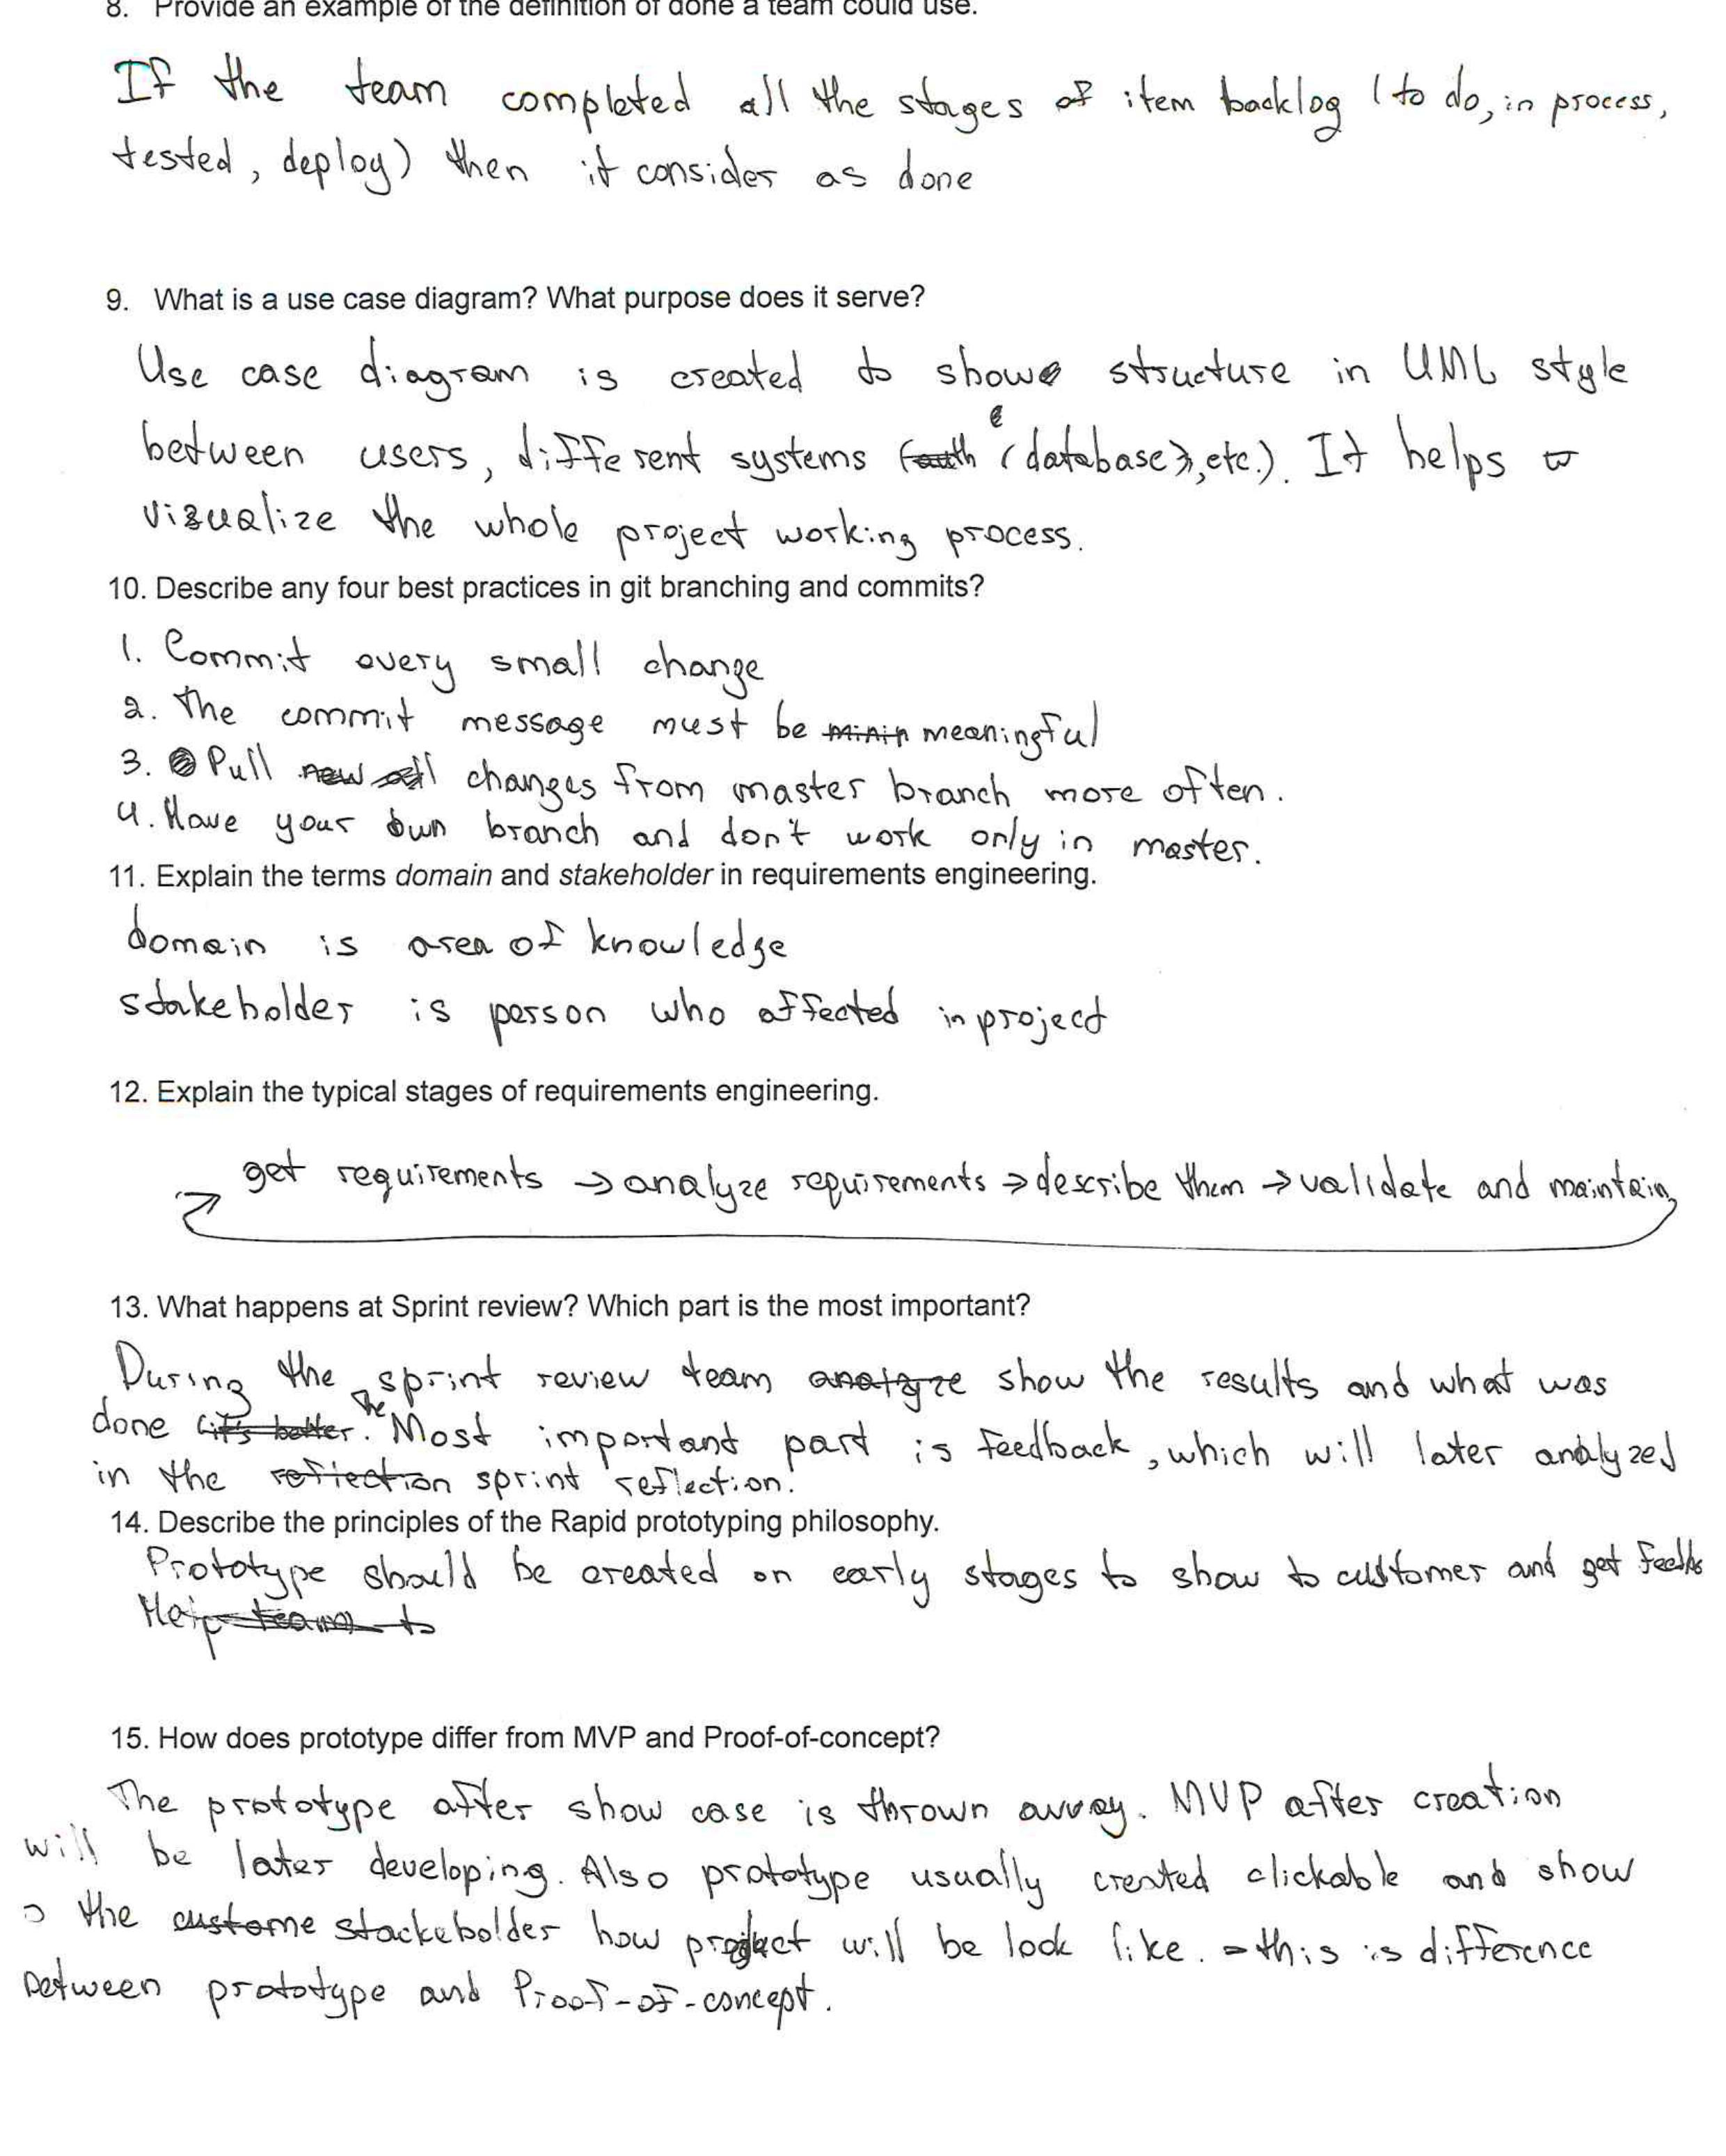 8. Provide an example of the definition of done a team could use.
If the team completed all the stages of item backlog (to do, in process,
tested, deploy) then it consider as done
9. What is a use case diagram? What purpose does it serve?
Use case diagram is created to show structure in UML style
between users, different systems (database, etc.). It helps to
vizualize the whole project working process.
10. Describe any four best practices in git branching and commits?
1. Commit every small change
2. The commit message must be meaningful
3. Pull changes from master branch more often.
4. Have your own branch and don't work only in master.
11. Explain the terms domain and stakeholder in requirements engineering.
domain is area of knowledge
stakeholder is person who affected in project
12. Explain the typical stages of requirements engineering.
get requirements → analyze requirements → describe them → validate and maintain
13. What happens at Sprint review? Which part is the most important?
During the sprint review team analyze show the results and what was
done it's better. The Most important part is feedback, which will later analyzed
in the reflection sprint reflection.
14. Describe the principles of the Rapid prototyping philosophy.
Prototype should be created on early stages to show to customer and get feedb
Help team to
15. How does prototype differ from MVP and Proof-of-concept?
The prototype after show case is thrown away. MVP after creation
will be later developing. Also prototype usually created clickable and show
the custome stackeholder how product will be look like. - this is difference
between prototype and Proof-of-concept.